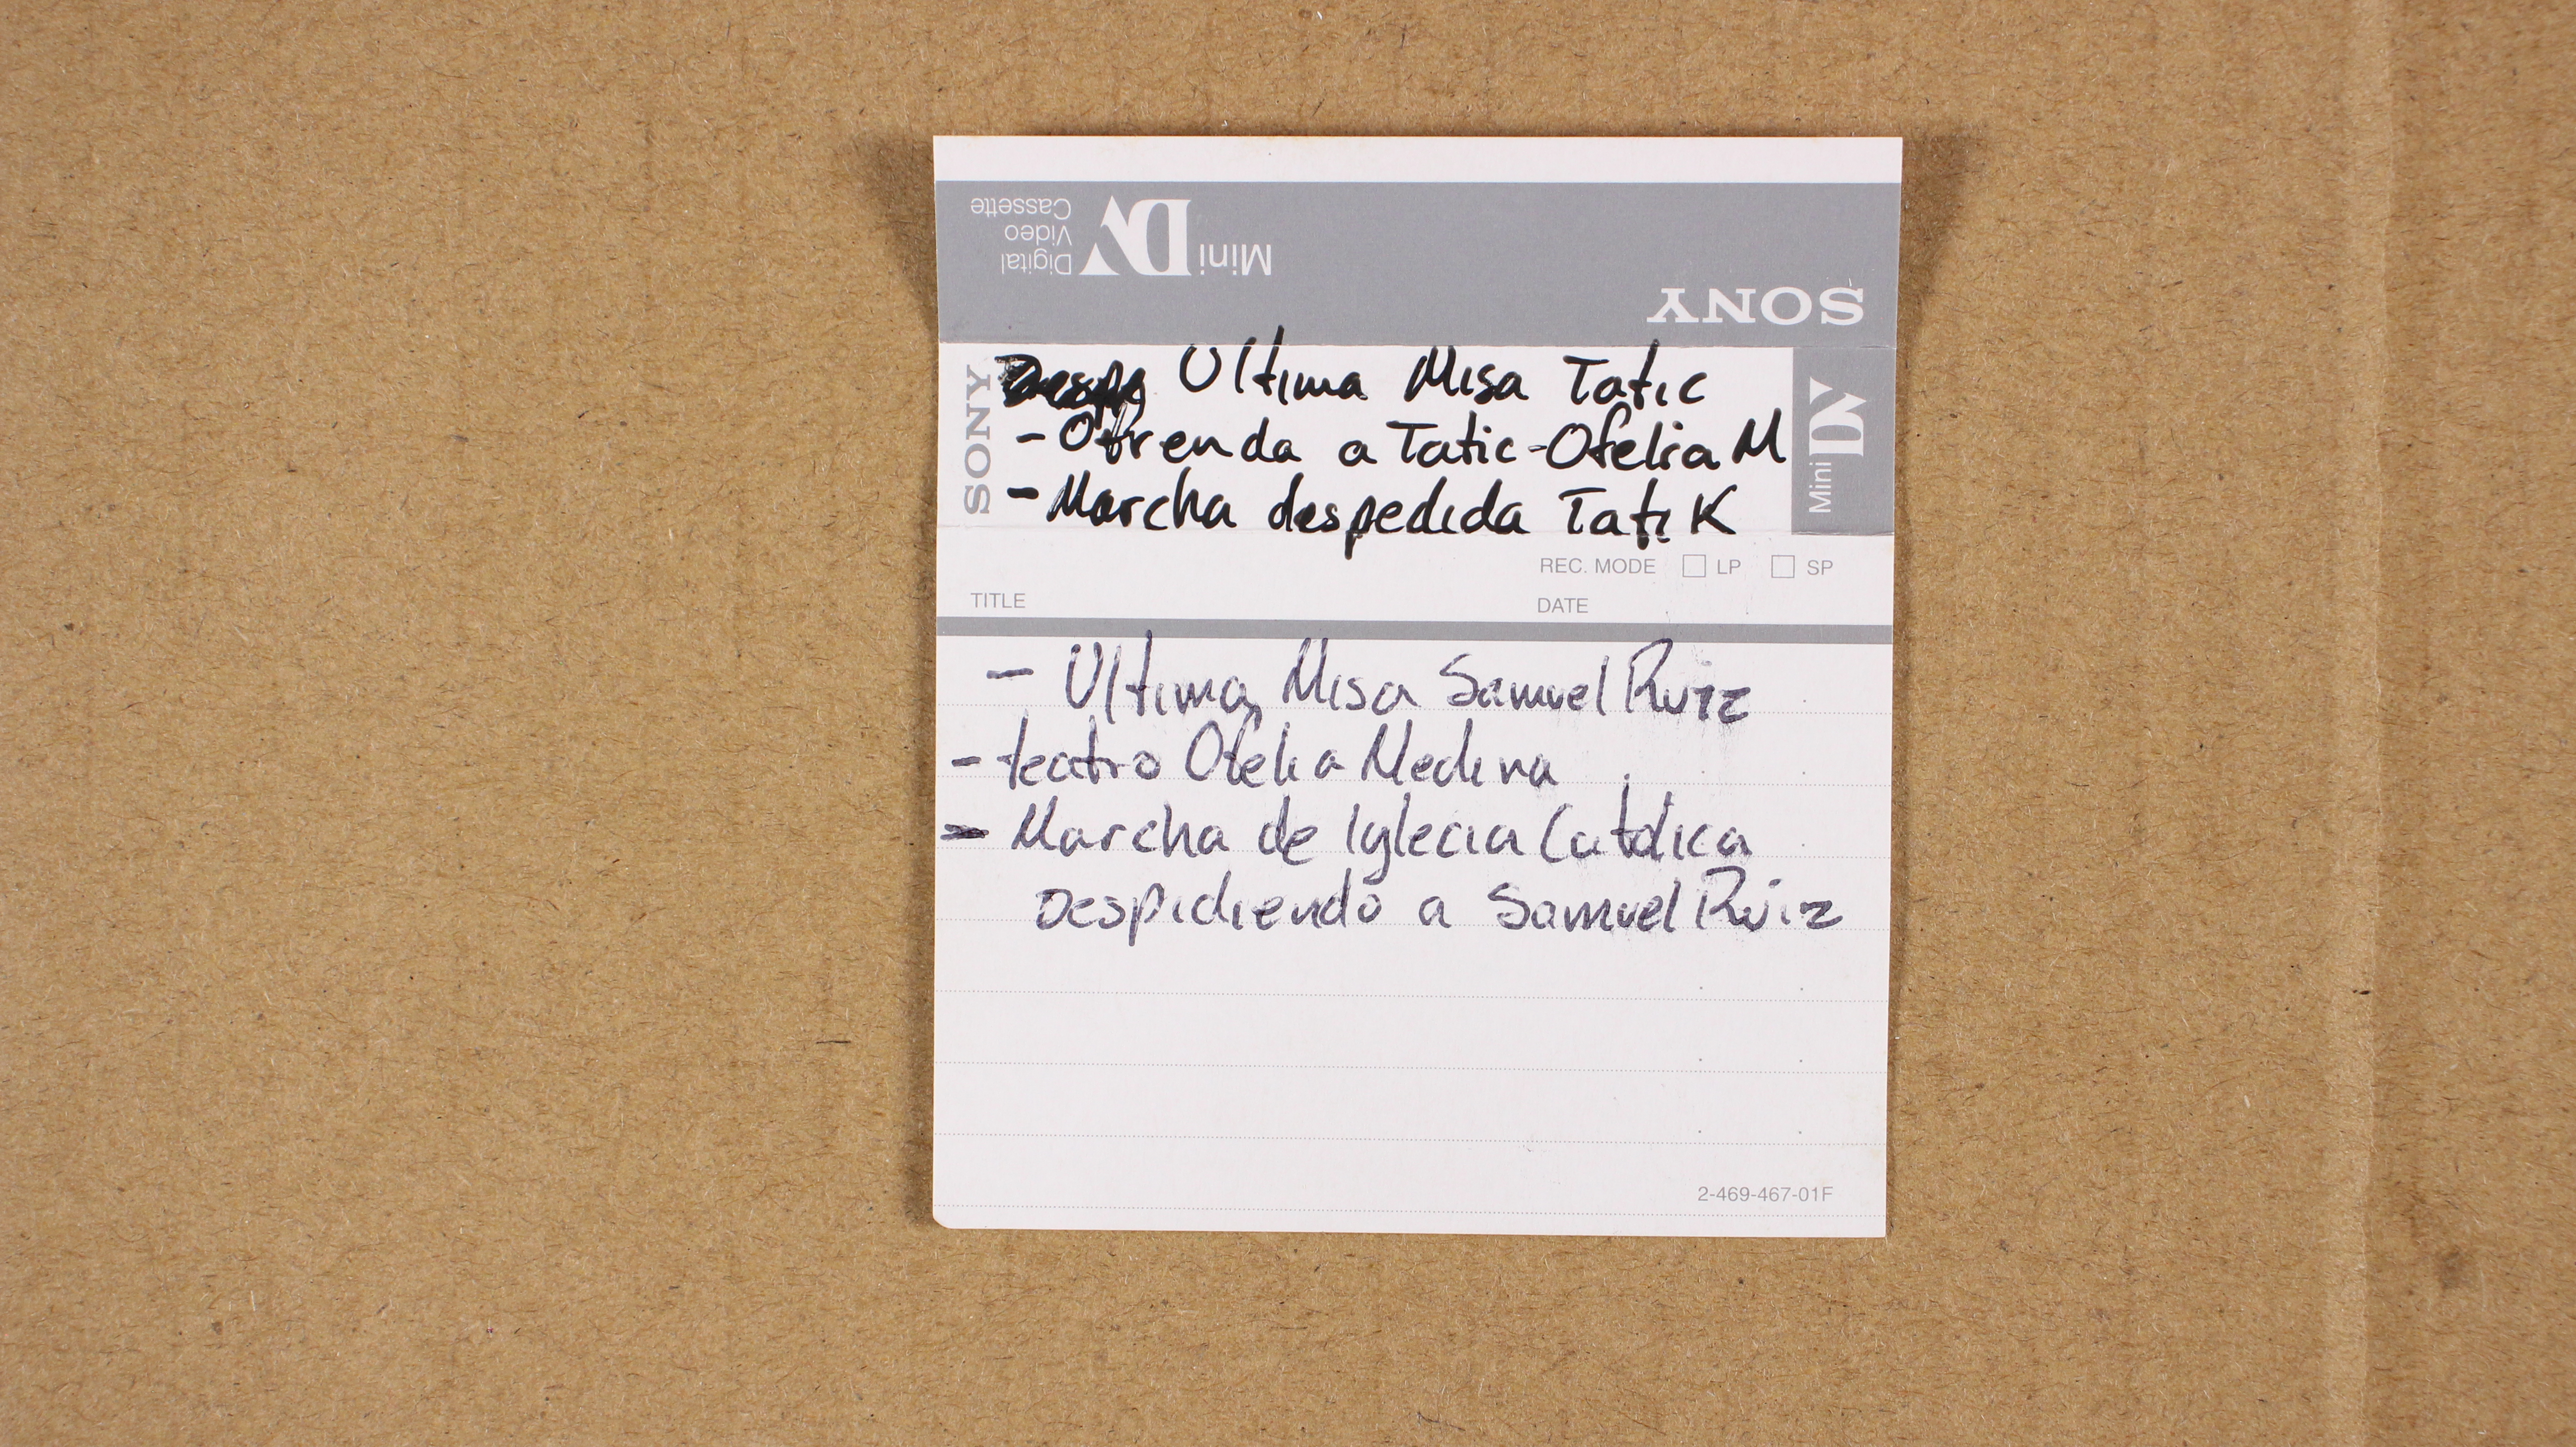 Digital
Video
Cassette
Mini DV
SONY
SONY
Ultima Misa Tatic
- Ofrenda a Tatic - Ofelia M
- Marcha despedida Tatik
Mini DV
REC. MODE □ LP □ SP
TITLE
DATE
- Ultima Misa Samuel Ruiz
- teatro Ofelia Medina
- Marcha de Iglecia Catolica
Despidiendo a Samuel Ruiz
2-469-467-01F